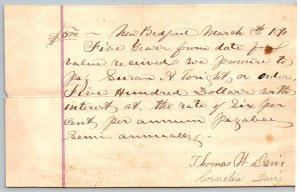 $500 — New Bedford March 8th 18
Five Years from date for
value received we promise to
pay Susan A Wright, or order
Five Hundred Dollars with
interest at the rate of Six per
cent per annum payable
Semi annually
Thomas W Davis
Cornelia Davis